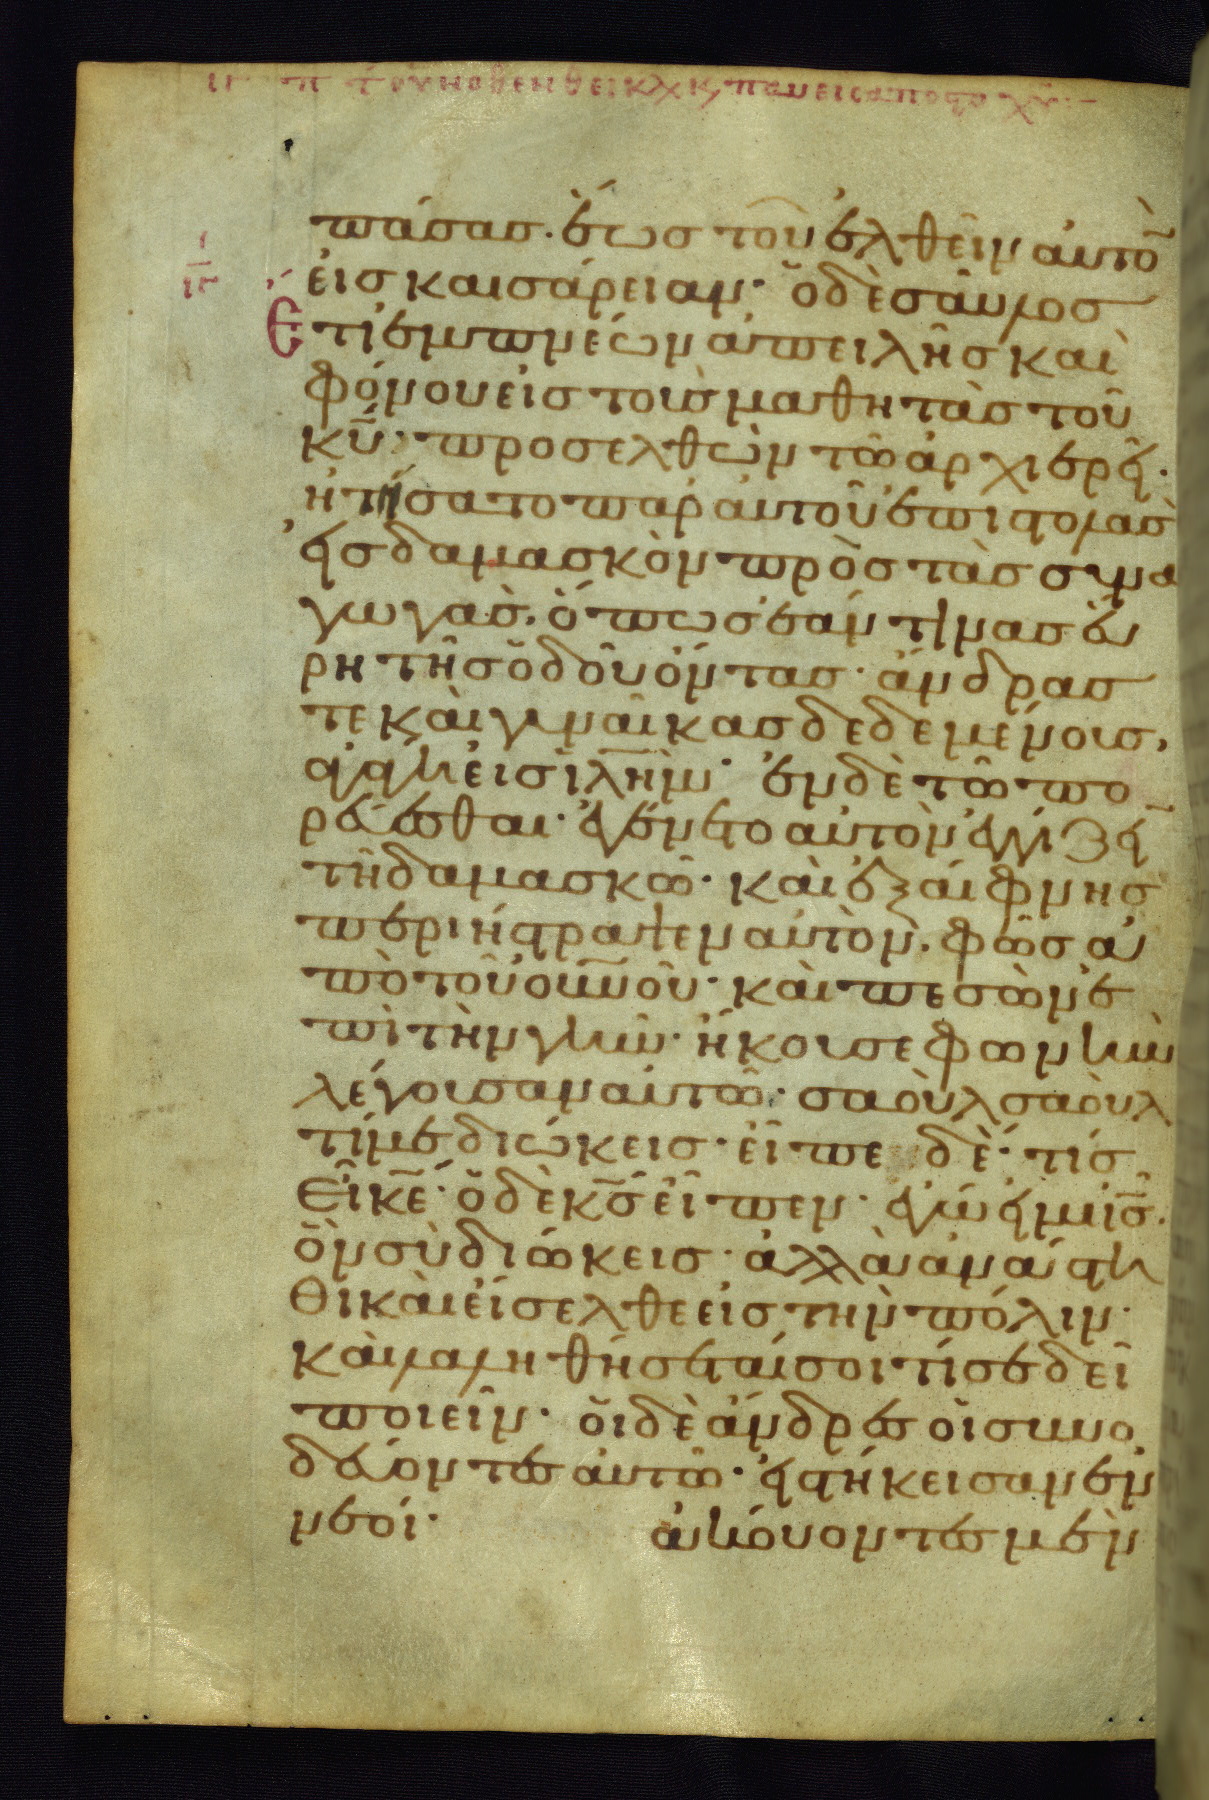 πάσας· ἕως τοῦ ἐλθεῖν αὐτὸ̄
εἰς καισάρειαν· ὁ δὲ σαῦλος
Ἔτι ἐμπνέων ἀπειλῆς καὶ
φόνου εἰς τοὺς μαθητὰς τοῦ
κῡ· προσελθὼν τῶ ἀρχιερεῖ·
ἠτήσατο παρ' αὐτοῦ ἐπιστολὰς
εἰς δαμασκὸν πρὸς τὰς συνα
γωγάς· ὅπως ἐάν τινας εὕ
ρη τῆς ὁδοῦ ὄντας· ἄνδρας
τε καὶ γυναῖκας δεδεμένους,
ἀγάγη εἰς ῑλη̄μ· ἐν δὲ τῶ πο
ρεύεσθαι· ἐγένετο αὐτὸν ἐγγίζεῑ
τῆ δαμασκῶ· καὶ ἐξαίφνης
περιήστραψεν αὐτὸν· φῶς ἀ
πὸ τοῦ οῡνοῦ· καὶ πεσὼν ἐ
πὶ τὴν γῆν· ἤκουσε φωνὴν
λέγουσαν αὐτῶ· σαοὺλ σαοὺλ
τί με διώκεις· εἶπε δέ· τίς
εἶ κ̄ε· ὁ δὲ κ̄ς εἶπεν· ἐγώ εἰμι ῑς·
ὃν σὺ διώκεις· ἀλλὰ ἀνάστη
θι καὶ εἴσελθε εἰς τὴν πόλιν·
καὶ λαληθήσεταί σοι τί σε δεῖ
ποιεῖν· οἱ δὲ ἄνδρες οἱ συνο
δεύοντες αὐτῶ· εἱστήκεισαν ἐν
νεοί· ἀκούοντες μὲν